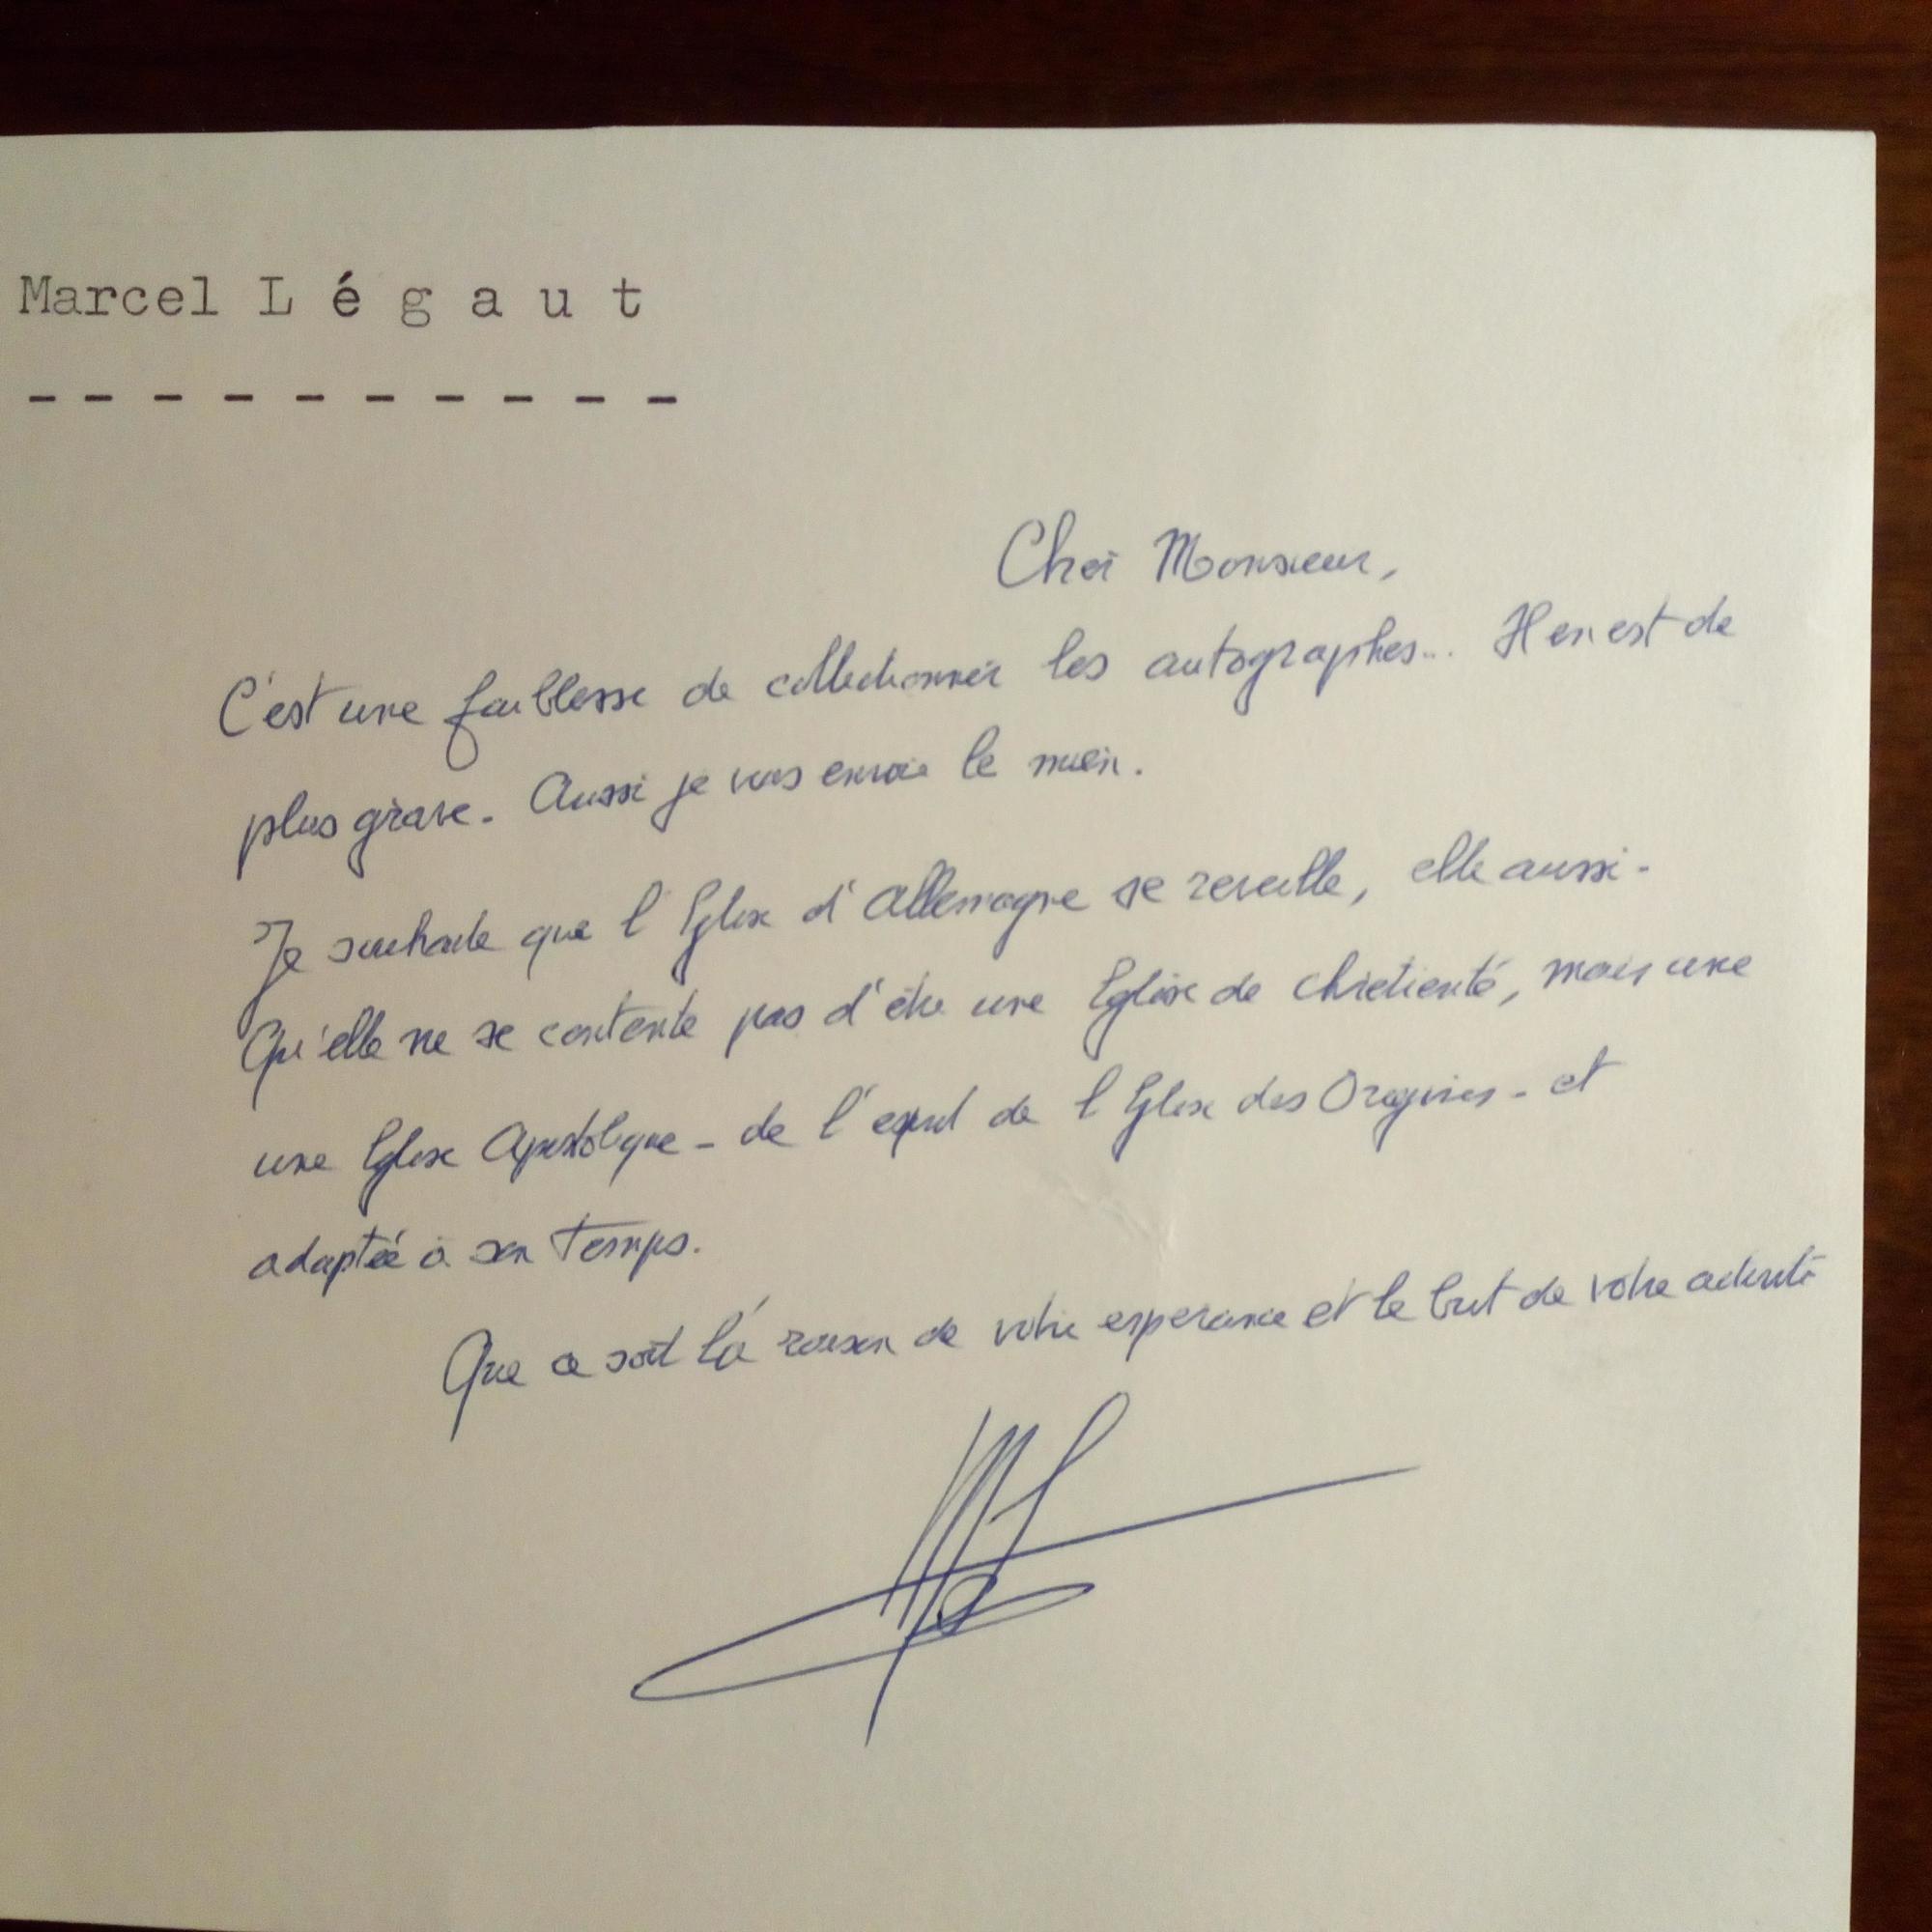 Marcel L é g a u t
- - - - - - - - - -
Cher Monsieur,
C'est une faiblesse de collectionner les autographes... Il en est de
plus grave. Aussi je vous envoie le mien.
Je souhaite que l'Eglise d'Allemagne se reveille, elle aussi.
Qu'elle ne se contente pas d'être une Eglise de chrétienté, mais une
une Eglise Apostolique - de l'esprit de l'Eglise des Origines - et
adaptée à son temps.
Que ce soit là raison de votre esperance et le but de votre activité